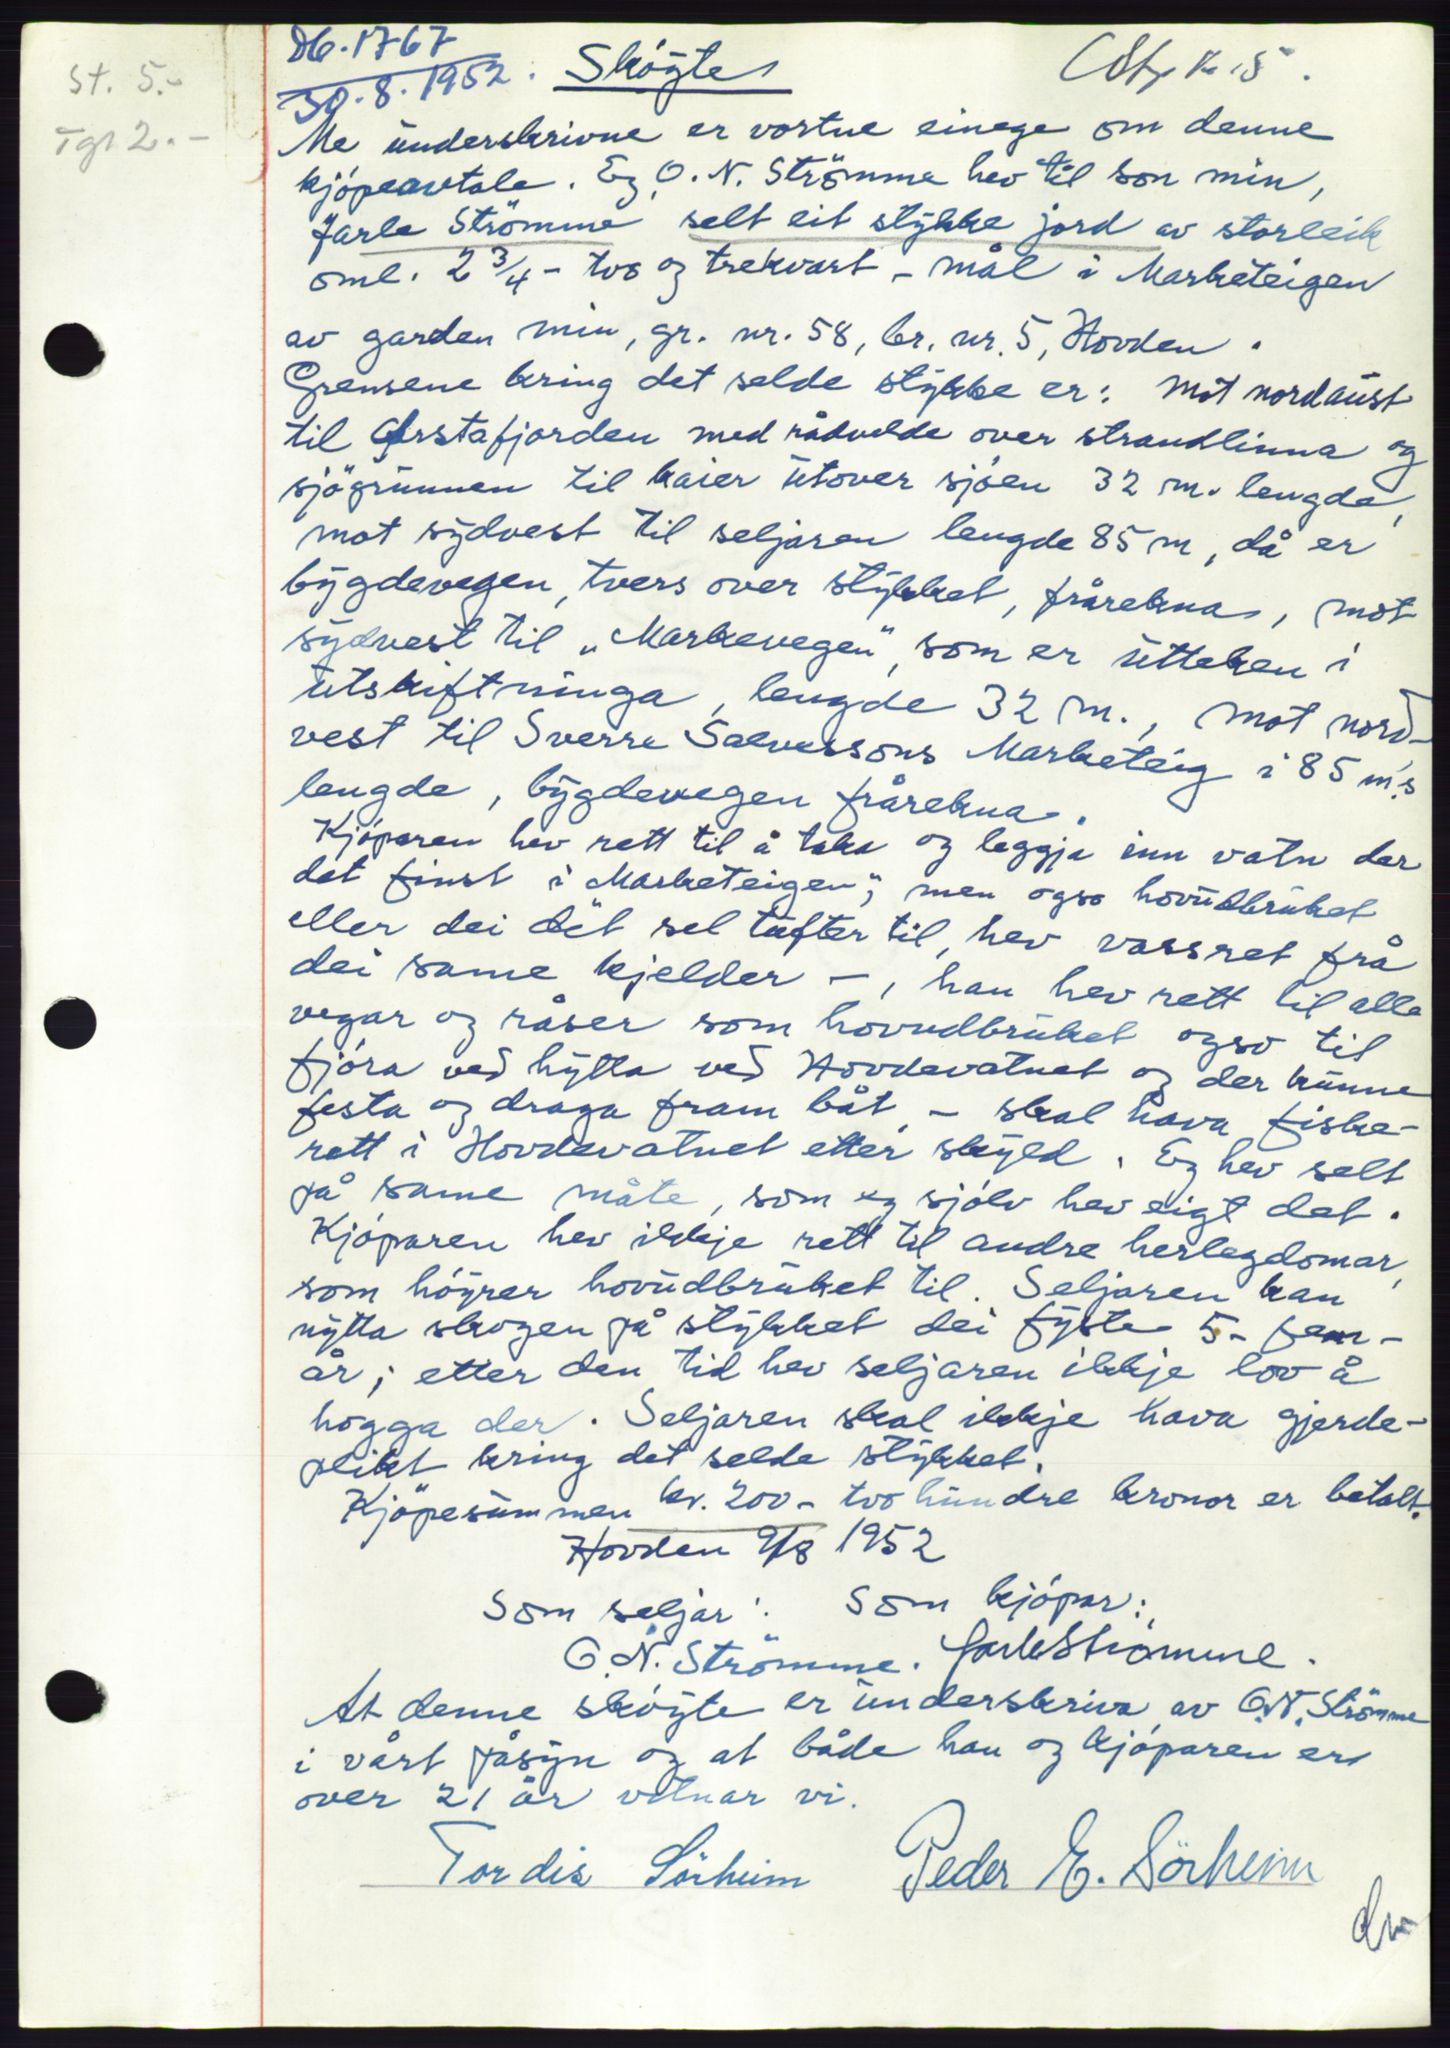 St. 5.-
Tgl 2.-
Db. 1767
30.8.1952.
Skóyte
Me underskrivne er vortne einege om denne
kjópeavtale. Eg, O. N. Strömme hev til son min,
Jarle Strömme selt eit stykke jord av storleik
oml. 2 3/4 - two og trekvart - mål i Marketeigen
av garden min, gr. nr. 58, br. nr. 5, Hovden.
Grensene kring det selde stykke er: Mot nordaust
til Ørstafjorden med rådvelde over strandlinna og
sjögrunnen til kaier utover sjóen 32 m. lengde,
mot sydvest til seljaren lengde 85 m, då er
bygdevegen, tvers over stykket, frårekna, mot
sydvest til „Markevegen", som er utteken i
utskiftninga, lengde 32 m., mot nord-
vest til Sverre Salvessons Marketeig i 85 m's
lengde, bygdevegen frårekna.
Kjóparen hev rett til å taka og leggja inn vatn der
det finst i Marketeigen", men ogso hovudbruket
eller dei det sel tufter til, hev vassret frå
dei same kjelder -, han hev rett til alle
vegar og råser som hovudbruket ogso til
fjóra ved hytta ved Hovdevatnet og der kunne
festa og draga fram båt, - skal hava fiske-
rett i Hovdevatnet etter skyld. Eg hev selt
på same måte, som eg sjólv hev eigt det.
Kjóparen hev ikkje rett til andre herlegdomar,
som hóyrer hovudbruket til. Seljaren kan
nytta skogen på stykket dei fyste 5- fem-
år; etter den tid hev seljaren ikkje lov å
hogga der. Seljaren skal ikkje hava gjerde-
plikt kring det selde stykket.
Kjöpesummen kr. 200- two hundre kronor er betalt.
Hovden 9/8 1952
Som seljar: Som kjópar:
O. N. Strömme. Jarle Strömme.
At denne skóyte er underskriva av O.N. Strömme
i vårt påsyn og at både han og kjóparen er
over 21 år vitnar vi.
Tordis Sörheim Peder E. Sörheim